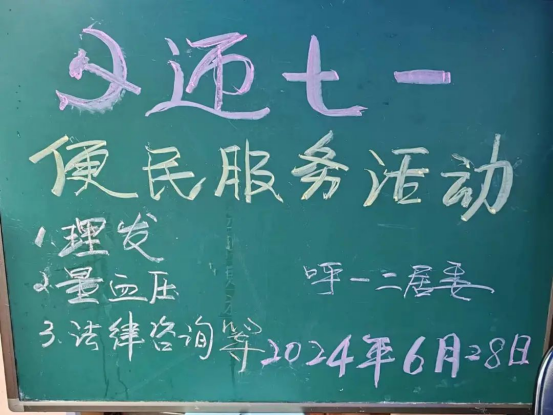 迎七一
便民服务活动
1.理发
2.量血压
呼一二居委
3.法律咨询等
2024年6月28日